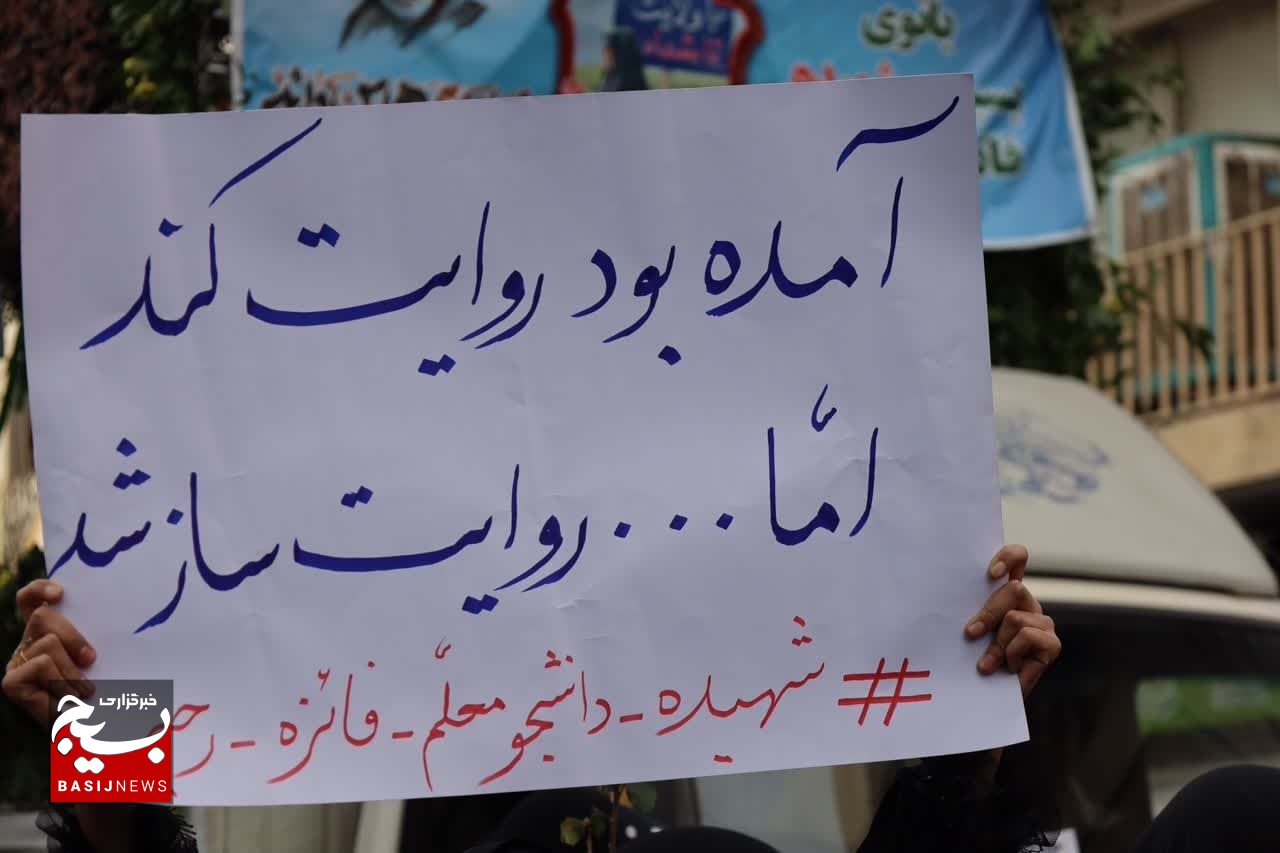 بانوی
آمده بود روایت کند
امّا... روایت ساز شد
#شهیده_دانشجو معلّم_فائزه_
خبرگزاری
بسیج
BASIJNEWS